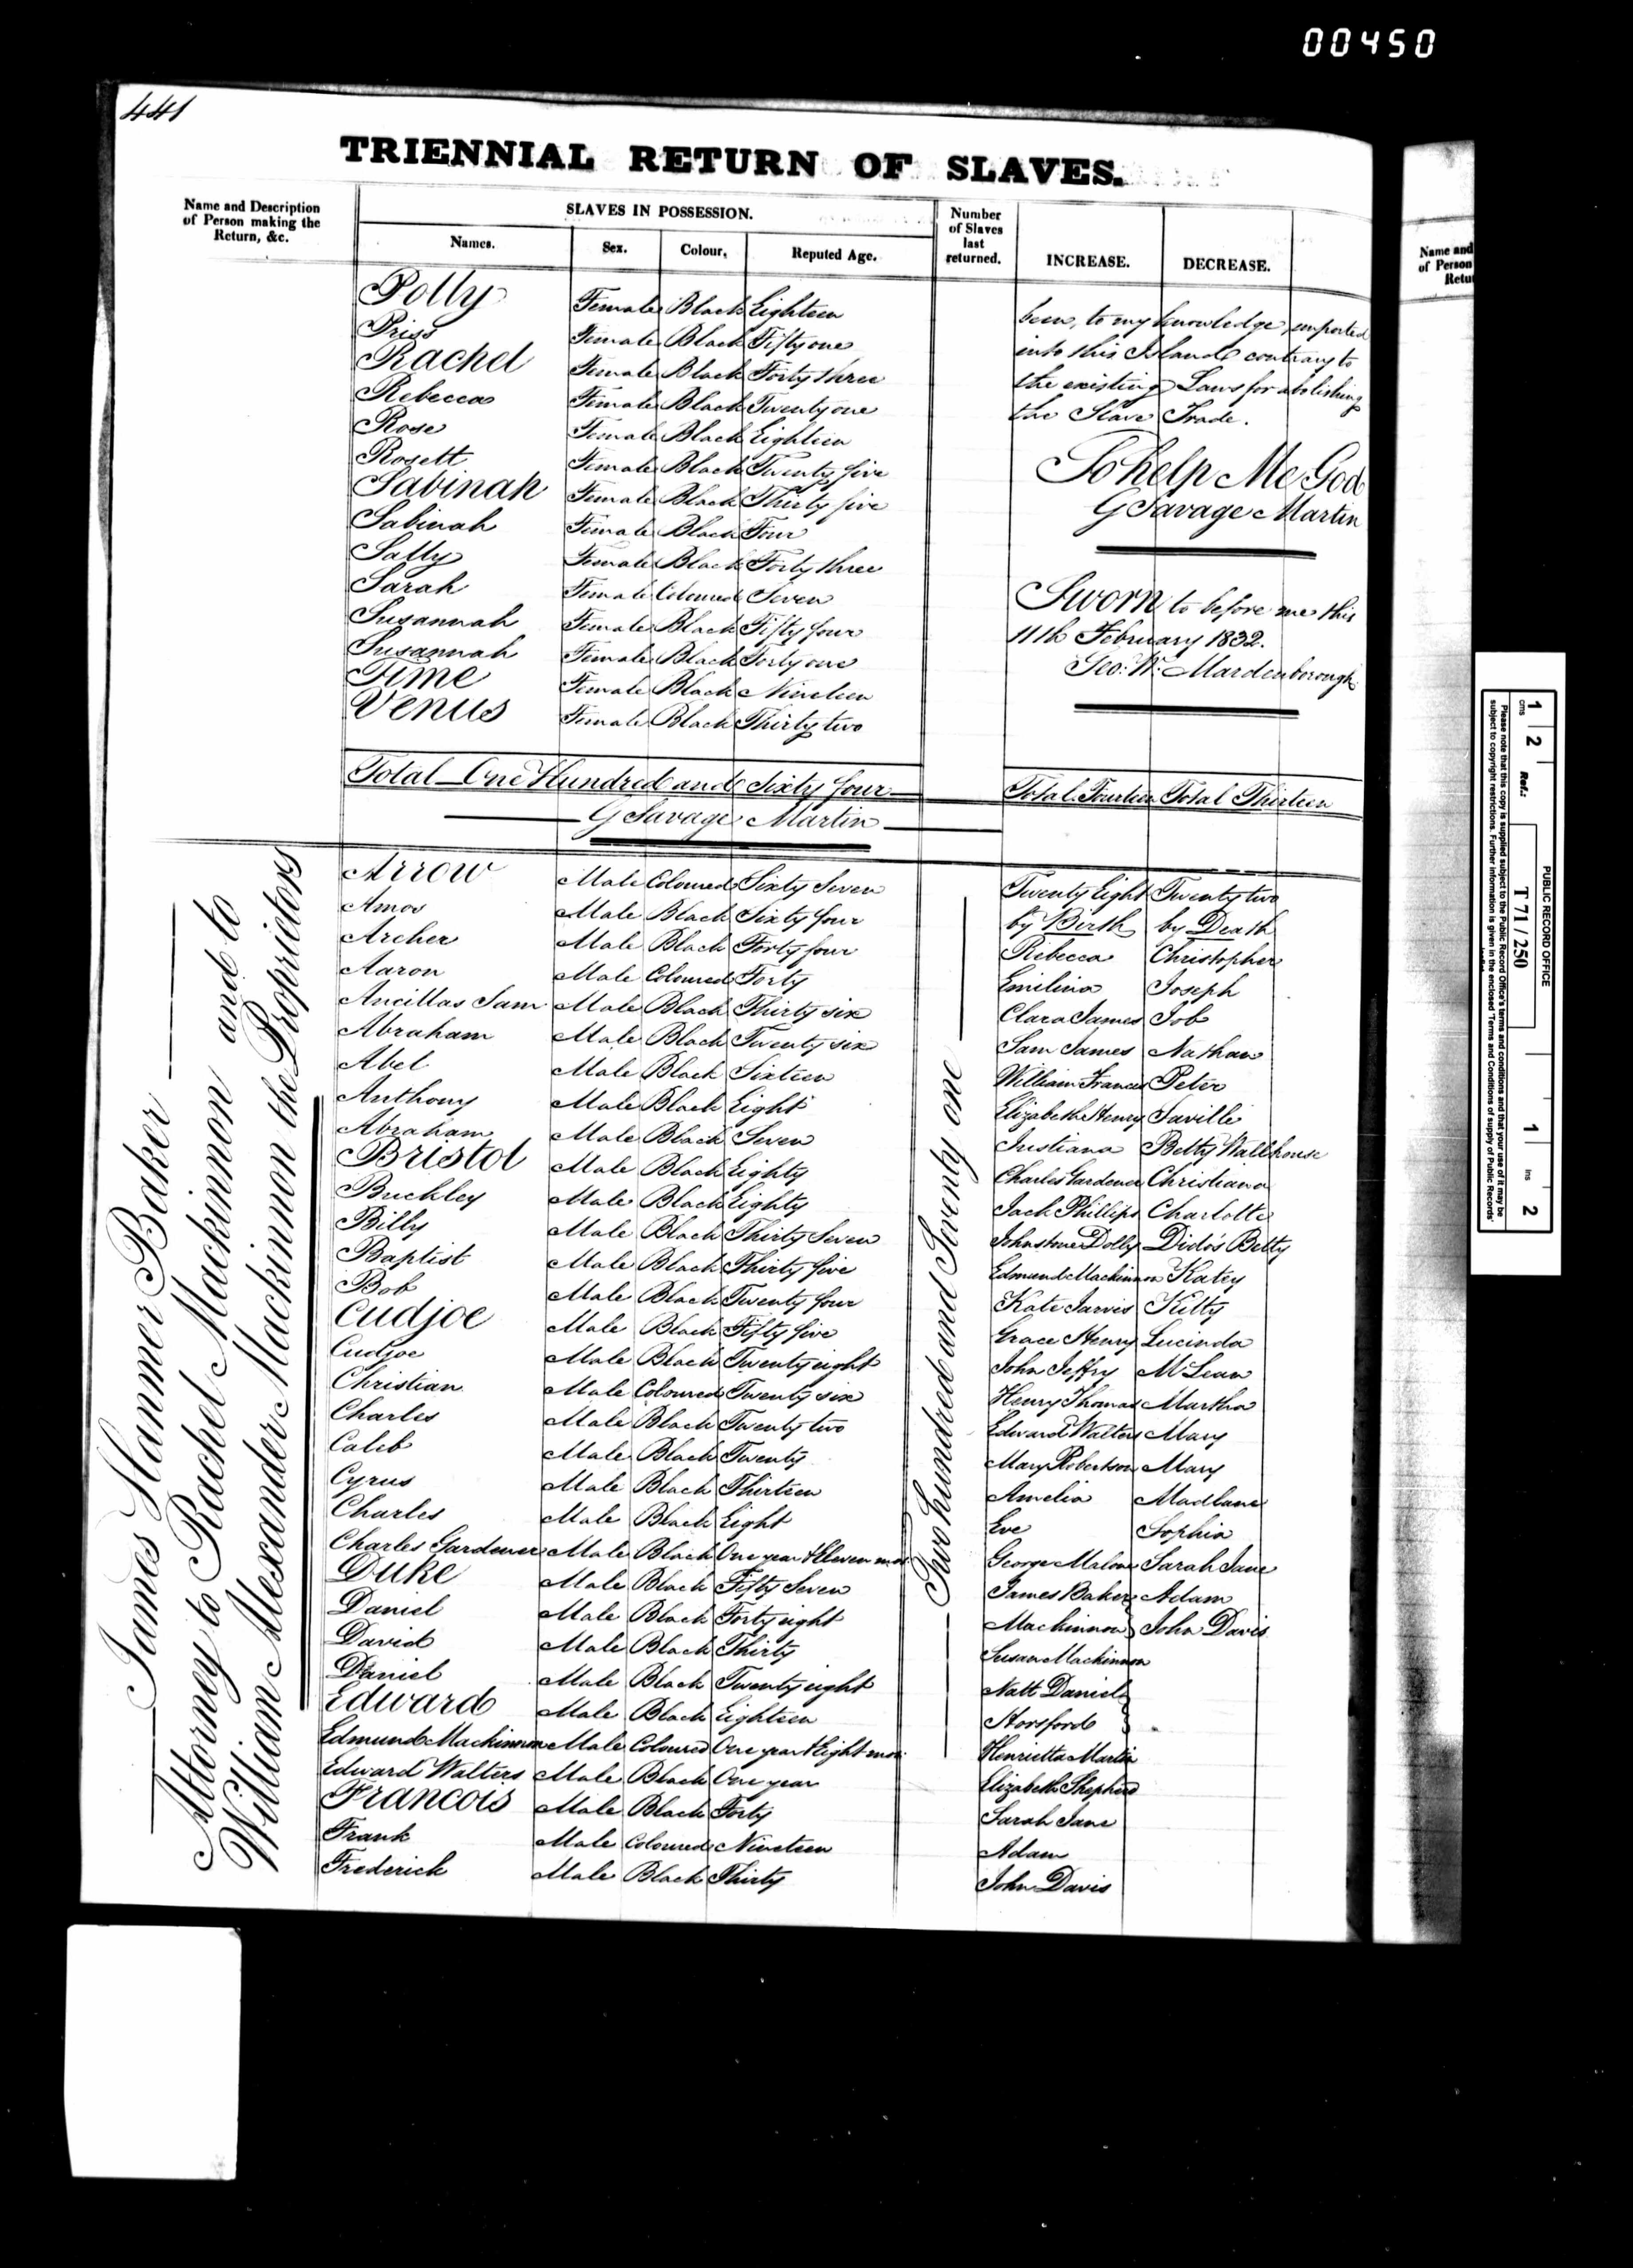 00450
441
TRIENNIAL RETURN OF SLAVES.
Name and Description of Person making the Return, &c.
SLAVES IN POSSESSION.
Names. Sex. Colour, Reputed Age.
Number of Slaves last returned.
INCREASE. DECREASE.
Polly Female Black Eighteen
Priss Female Black Fifty one
Rachel Female Black Forty three
Rebecca Female Black Twenty one
Rose Female Black Eighteen
Rosett Female Black Twenty five
Sabinah Female Black Thirty five
Sabinah Female Black Four
Sally Female Black Forty three
Sarah Female Coloured Seven
Susannah Female Black Fifty four
Susannah Female Black Forty one
Time Female Black Nineteen
Venus Female Black Thirty two
Total One Hundred and Sixty four
G Savage Martin
been, to my knowledge, imported
into this Island contrary to
the existing Laws for abolishing
the Slave Trade.
So help Me God
G Savage Martin
Sworn to before me this
11th February 1832.
Geo: W: Mardenborough
Total Fourteen Total Thirteen
James Hanmer Baker
Attorney to Rachel Mackinnon and to
William Alexander Mackinnon the Proprietors
Arrow Male Coloured Sixty Seven
Amos Male Black Sixty four
Archer Male Black Forty four
Aaron Male Coloured Forty
Ancillas Sam Male Black Thirty six
Abraham Male Black Twenty six
Abel Male Black Sixteen
Anthony Male Black Eight
Abraham Male Black Seven
Bristol Male Black Eighty
Buckley Male Black Eighty
Billy Male Black Thirty Seven
Baptist Male Black Thirty five
Bob Male Black Twenty four
Cudjoe Male Black Fifty five
Cudjoe Male Black Twenty eight
Christian Male Coloured Twenty six
Charles Male Black Twenty two
Caleb Male Black Twenty
Cyrus Male Black Thirteen
Charles Male Black Eight
Charles Gardener Male Black One year & Eleven mos.
Duke Male Black Fifty Seven
Daniel Male Black Forty eight
David Male Black Thirty
Daniel Male Black Twenty eight
Edward Male Black Eighteen
Edmund Mackinnon Male Coloured One year & Eight mos.
Edward Walters Male Black One year
Francois Male Black Forty
Frank Male Coloured Nineteen
Frederick Male Black Thirty
Two hundred and Seventy one
Twenty Eight Twenty two
by Birth by Death
Rebecca Christopher
Emilina Joseph
Clara James Job
Sam James Nathan
William Frances Peter
Elizabeth Henry Saville
Justiana Betty Wallhouse
Charles Gardener Christiana
Jack Phillips Charlotte
Johnstone Dolly Dido's Betty
Edmund Mackinnon Katey
Kate Jarvis Kitty
Grace Henry Lucinda
John Jeffry McLean
Henry Thomas Martha
Edward Walters Mary
Mary Robertson Mary
Amelia Madlane
Eve Sophia
George Malone Sarah Jane
James Baker Adam
Mackinnon John Davis
Susan Mackinnon
Natt Daniel
Horsford
Henrietta Martin
Elizabeth Shepherd
Sarah Jane
Adam
John Davis
Name and
of Person
Retu
PUBLIC RECORD OFFICE
Ref.: T 71/250
1 2 cms
1 ins 2
Please note that this copy is supplied subject to the Public Record Office's terms and conditions and that your use of it may be
subject to copyright restrictions. Further information is given in the enclosed 'Terms and Conditions of supply of Public Records'